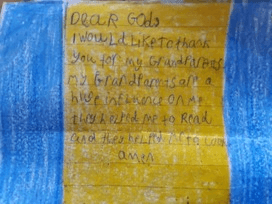 DEAR GOD,
I WOULD LIKE To thank
You for my GRanDPaRents
my GRanDParents are a
huge influence on me
they helPeD me to Read
and they helPeD me to
amen